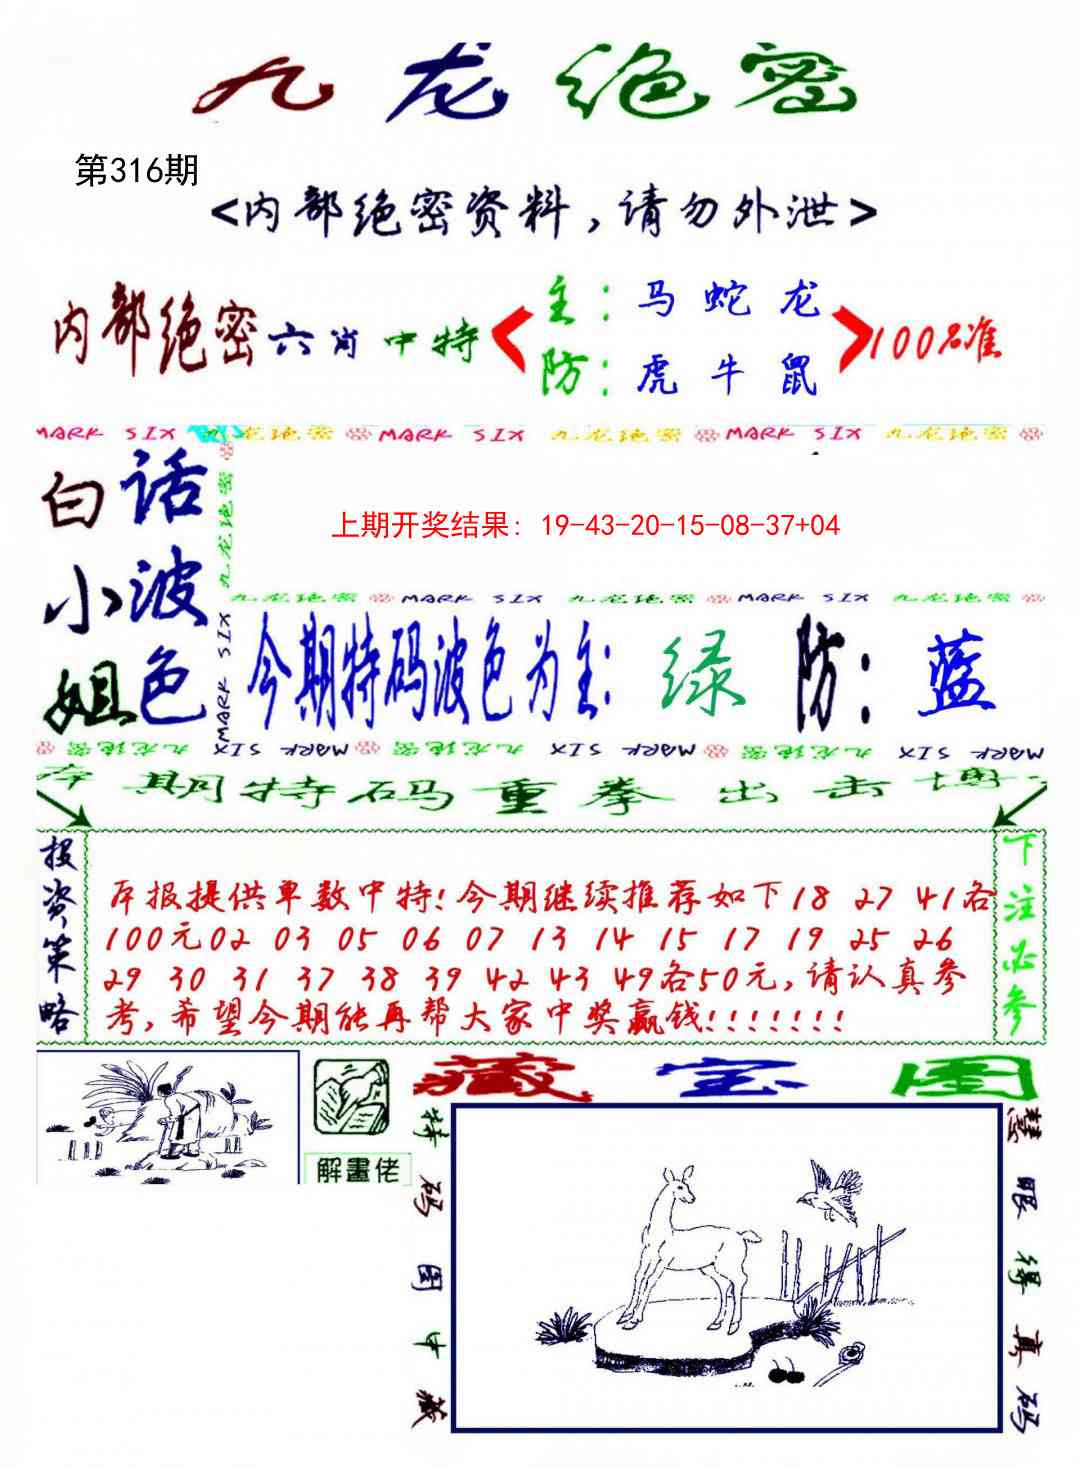 九龙绝密
第316期
<内部绝密资料,请勿外泄>
内部绝密六肖中特
主：马 蛇 龙
防：虎 牛 鼠
100%准
MARK SIX 九龙绝密 MARK SIX 九龙绝密 MARK SIX 九龙绝密
白话
小波
姐色
九龙绝密
MARK SIX
上期开奖结果: 19-43-20-15-08-37+04
九龙绝密 MARK SIX 九龙绝密 MARK SIX 九龙绝密
今期特码波色为主: 绿 防: 蓝
九龙绝密 MARK SIX 九龙绝密 MARK SIX 九龙绝密 MARK SIX
本期特码重拳出击博
投资策略
本报提供单数中特!今期继续推荐如下18 27 41各
100元02 03 05 06 07 13 14 15 17 19 25 26
29 30 31 37 38 39 42 43 49各50元,请认真参
考,希望今期能再帮大家中奖赢钱!!!!!!!
下注必参
解畫佬
藏宝图
特码图中藏
慧眼得真码